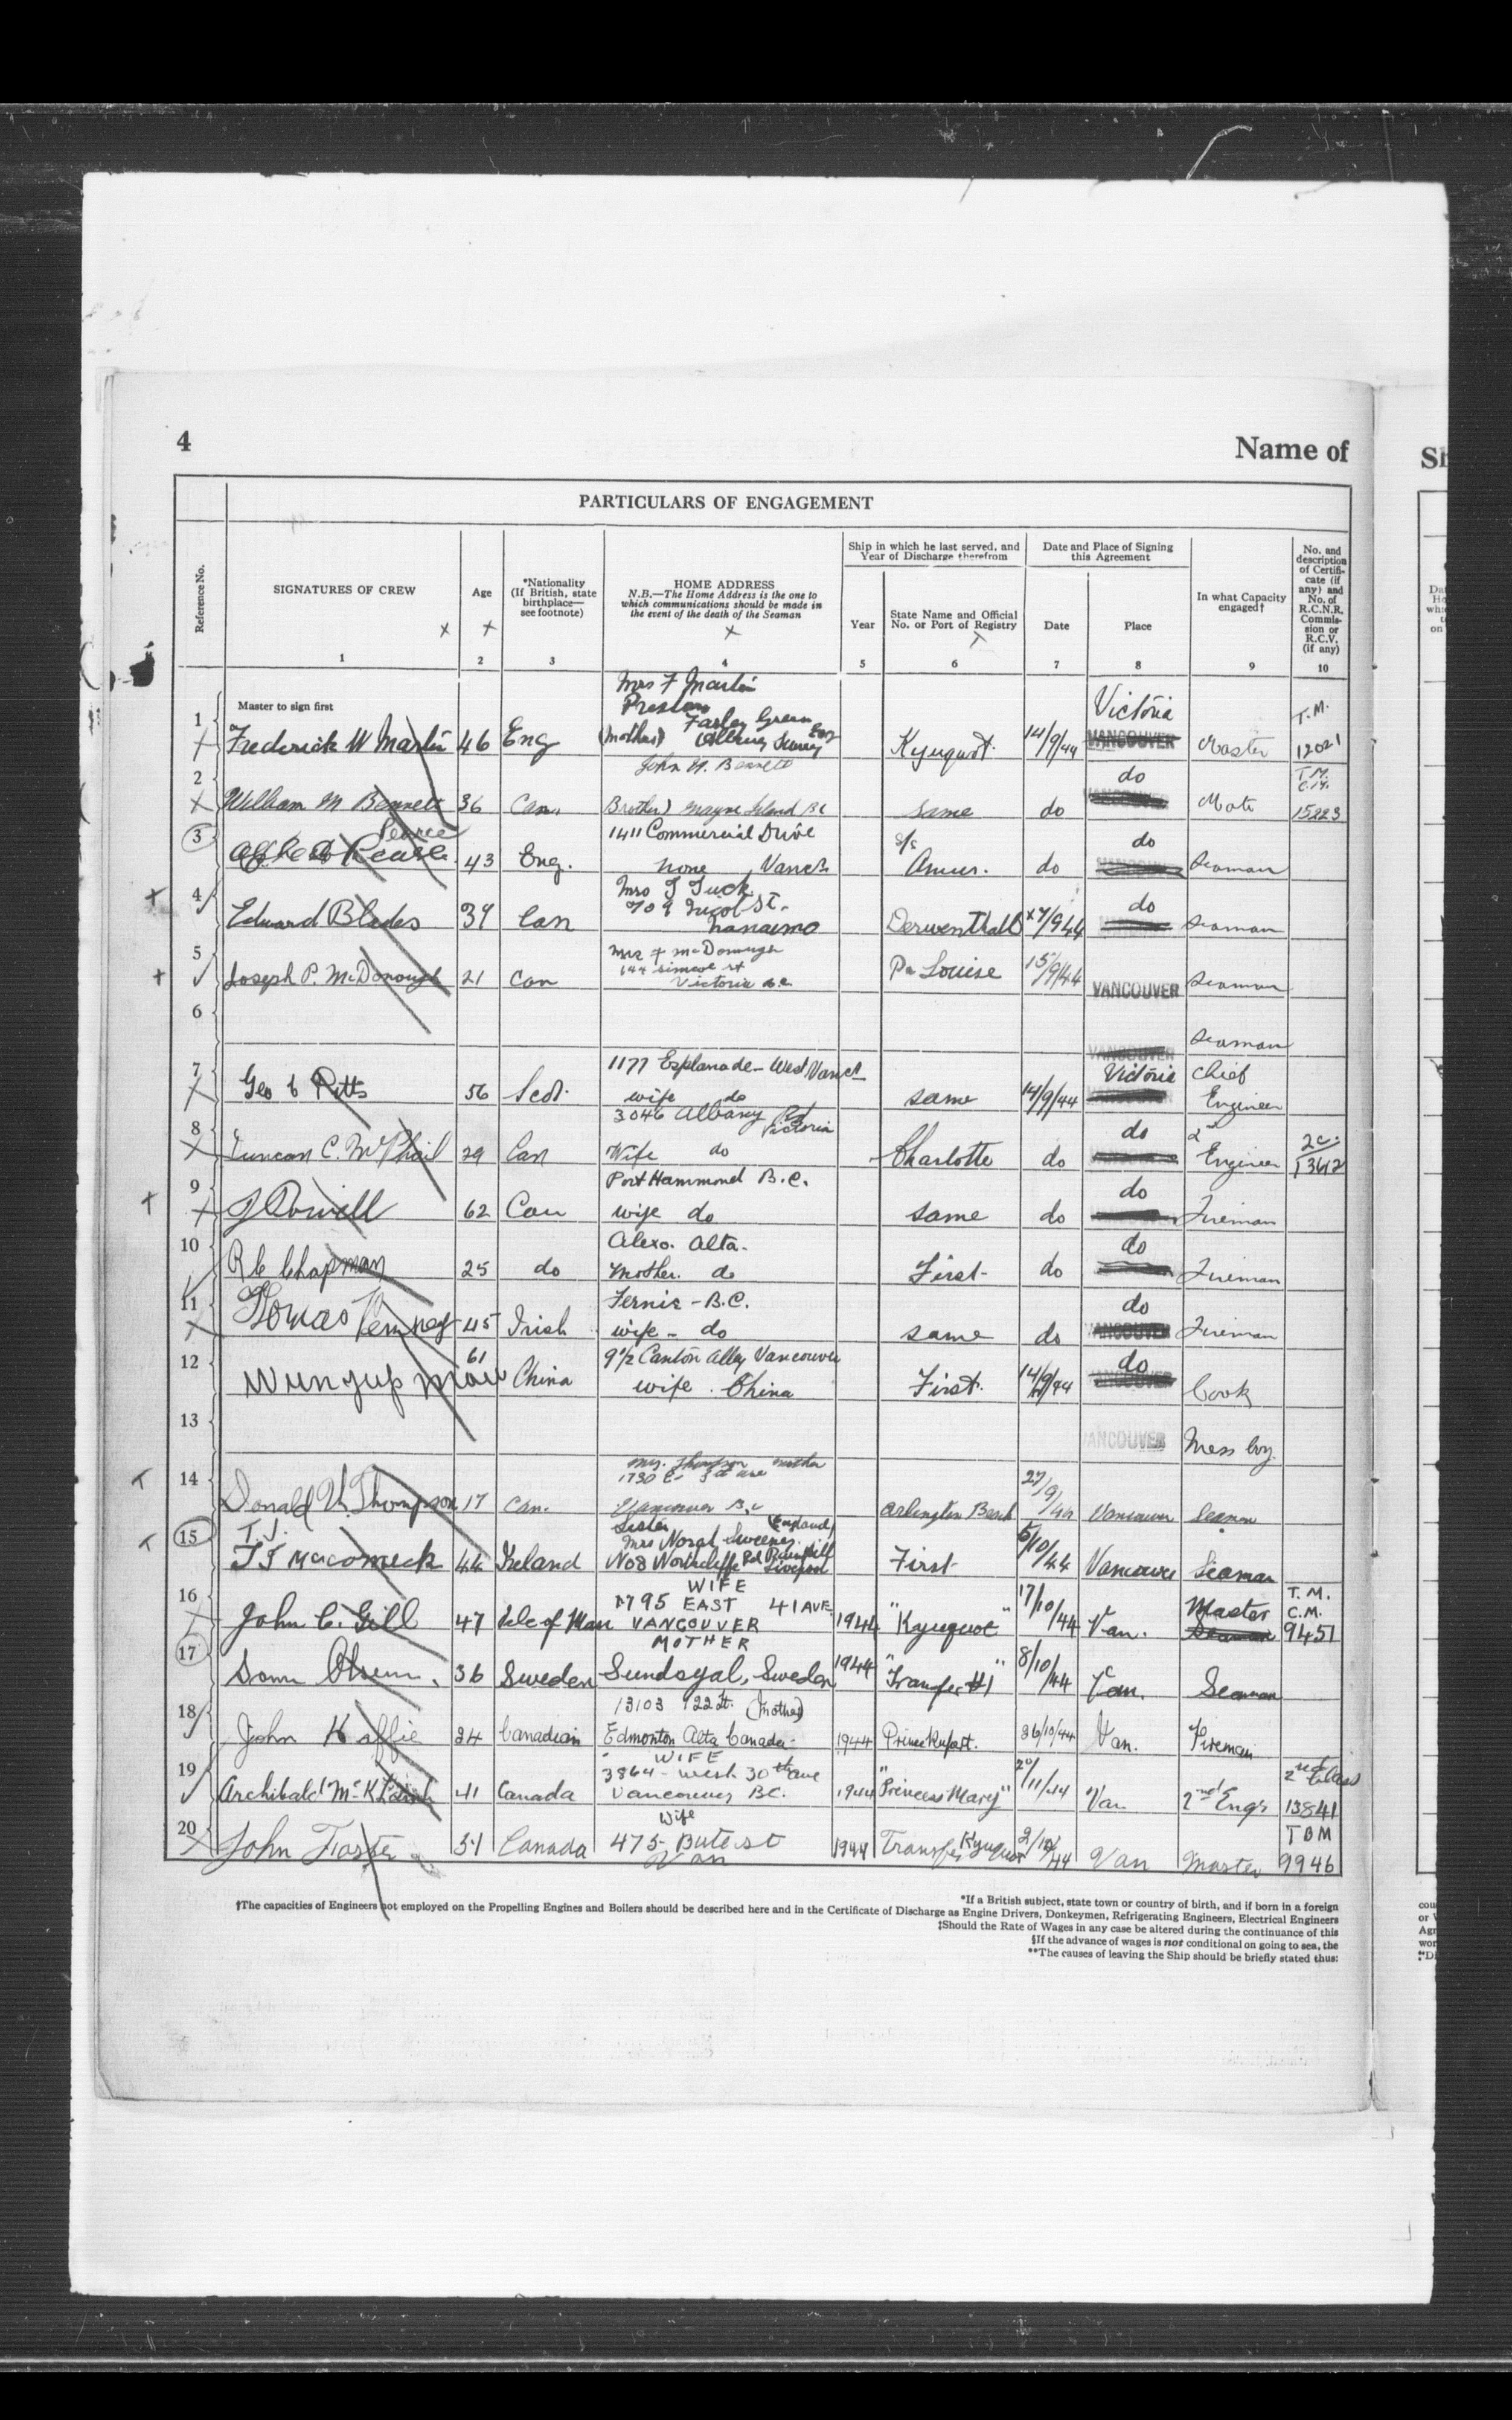 4
Name of
PARTICULARS OF ENGAGEMENT
Reference No.
SIGNATURES OF CREW
1
Age
2
*Nationality
(If British, state
birthplace—
see footnote)
3
HOME ADDRESS
N.B.—The Home Address is the one to
which communications should be made in
the event of the death of the Seaman
4
Ship in which he last served, and
Year of Discharge therefrom
Year
5
State Name and Official
No. or Port of Registry
6
Date and Place of Signing
this Agreement
Date
7
Place
8
In what Capacity
engaged†
9
No. and
description
of Certifi-
cate (if
any) and
No. of
R.C.N.R.
Commis-
sion or
R.C.V.
(if any)
10
Master to sign first
Mrs F Martin
Farley Green
Victoria
T.M.
1 Frederick W Martin 46 Eng (Mother) Albury Surrey Eng Kyuquot 14/9/44 VANCOUVER Master 12021
John H. Bennett
do
T.M.
C.M.
2 William M Bennett 36 Can. Brother) Mayne Island BC same do Mate 15223
Pearce
1411 Commercial Drive
S/S
do
3 43 Eng. none Vancr Amur. do Seaman
Mrs J Tuck
709 Nicol St.
do
4 Edward Blades 39 Can Nanaimo Derwenthall 7/9/44 Seaman
144 Simcoe st
5 Joseph P. McDonough 21 Can Victoria B.C. Pr Louise 15/9/44 VANCOUVER Seaman
6 VANCOUVER Seaman
1177 Esplanade - West Vancr
Victoria Chief
7 Geo C Pitts 56 Scot. wife do same 14/9/44 Engineer
3046 Albany Rd
Victoria
do 2nd
8 Duncan C. McPhail 29 Can Wife do Charlotte do Engineer 2c. 13612
Port Hammond B.C.
do
9 62 Can wife do same do Fireman
Alexo. Alta.
do
10 R C Chapman 25 do Mother. do First do Fireman
Fernie - B.C.
do
11 Thomas 45 Irish wife - do same do VANCOUVER Fireman
61
9½ Canton Alley Vancouver
do
12 China wife . China First. 14/9/44 VANCOUVER Cook
13 VANCOUVER Mess boy
Mrs. Thompson mother
14 Donald V. Thompson 17 Can. Vancouver B.C Arlington Beach 27/9/44 Vancouver Seaman
T.J.
Sister (England)
Mrs Norah Sweeney
15 44 Ireland Liverpool First 5/10/44 Vancouver Seaman
WIFE
1795 EAST 41 AVE
Master
T.M.
C.M.
16 John C. Gill 47 Isle of Man VANCOUVER 1944 "Kyuquot" 17/10/44 Van. Seaman 9451
MOTHER
17 36 Sweden Sweden 1944 "Transfer #1" 8/10/44 Van. Seaman
13103 122 St. (Mother)
18 John 24 Canadian Edmonton Alta Canada 1944 Prince Rupert. 26/10/44 Van. Fireman
WIFE
3864 - West 30th ave
2nd Class
19 Archibald 41 Canada Vancouver BC. 1944 "Princess Mary" 20/11/44 Van 2nd Engr 13841
wife
TBM
20 John Foster 51 Canada 475- Bute st 1944 Transfer Kyuquot 2/12/44 Van Master 9946
Van
*If a British subject, state town or country of birth, and if born in a foreign
†The capacities of Engineers not employed on the Propelling Engines and Boilers should be described here and in the Certificate of Discharge as Engine Drivers, Donkeymen, Refrigerating Engineers, Electrical Engineers
‡Should the Rate of Wages in any case be altered during the continuance of this
§If the advance of wages is not conditional on going to sea, the
**The causes of leaving the Ship should be briefly stated thus: